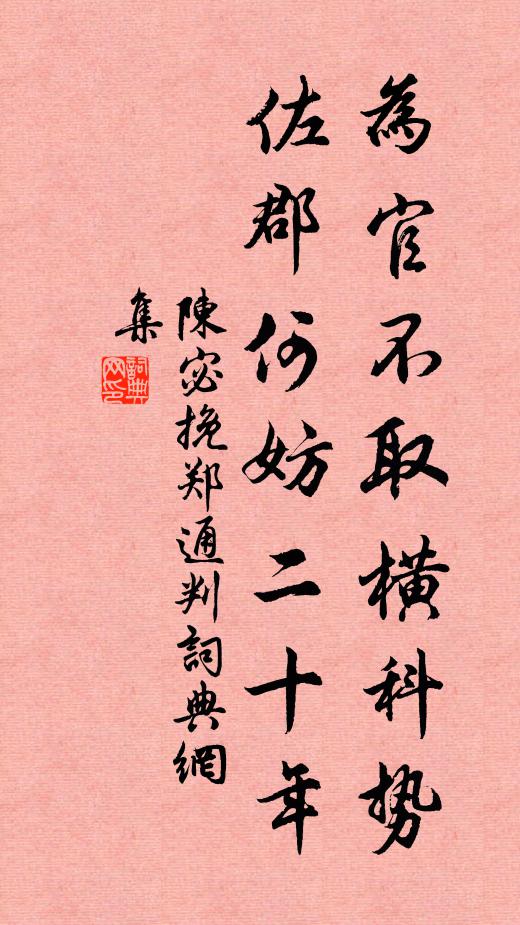 為官不取橫科势
佐郡何妨二十年
陳宓挽郑通判詞典網
集
詞典网印